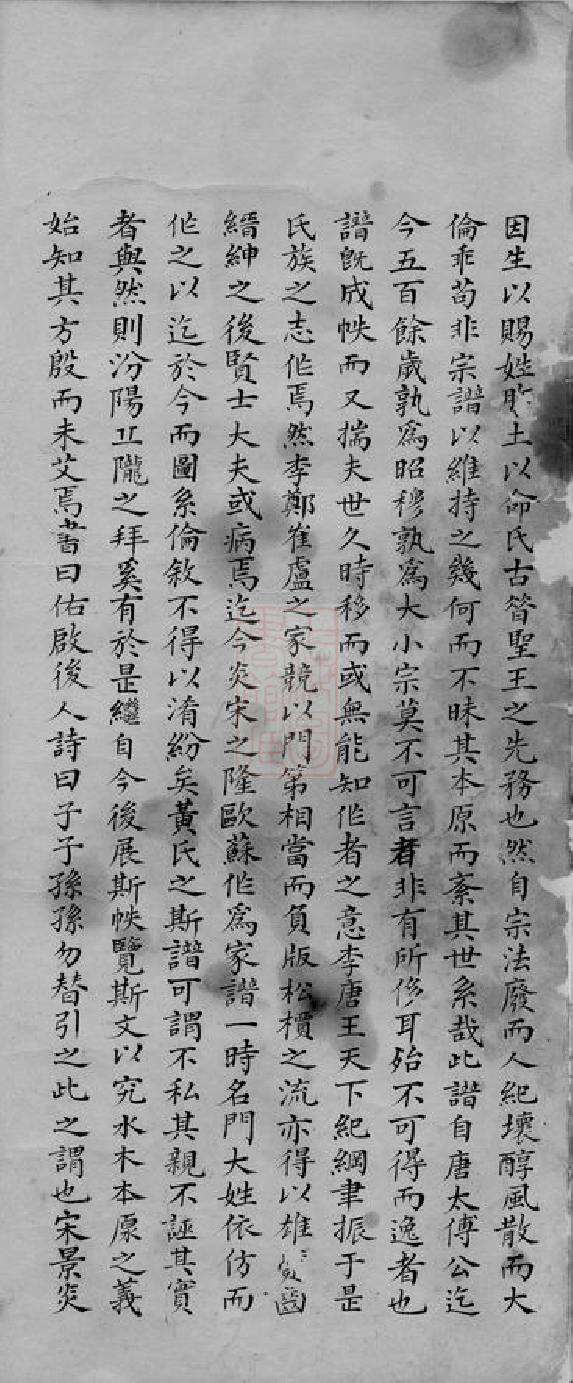 因生以賜姓胙土以命氏古昝聖王之先務也然自宗法廢而人紀壞醇風散而大
倫乖苟非宗譜以維持之幾何而不昧其本原而紊其世系哉此譜自唐太傅公迄
今五百餘歲孰爲昭穆孰爲大小宗莫不可言者非有所侈耳殆不可得而逸者也
譜既成帙而又揣夫世久時移而或無能知作者之意李唐王天下紀綱聿振于是
氏族之志作焉然李鄭崔盧之家競以門第相當而負版松檟之流亦得以雄圖
縉紳之後賢士大夫或病焉迄今炎宋之隆歐蘇作爲家譜一時名門大姓依仿而
作之以迄於今而圖系倫敘不得以淆紛矣黃氏之斯譜可謂不私其親不誣其實
者與然則汾陽丘隴之拜奚有於是繼自今後展斯帙覽斯文以究水木本原之義
始知其方殷而未艾焉書曰佑啟後人詩曰子子孫孫勿替引之此之謂也宋景炎